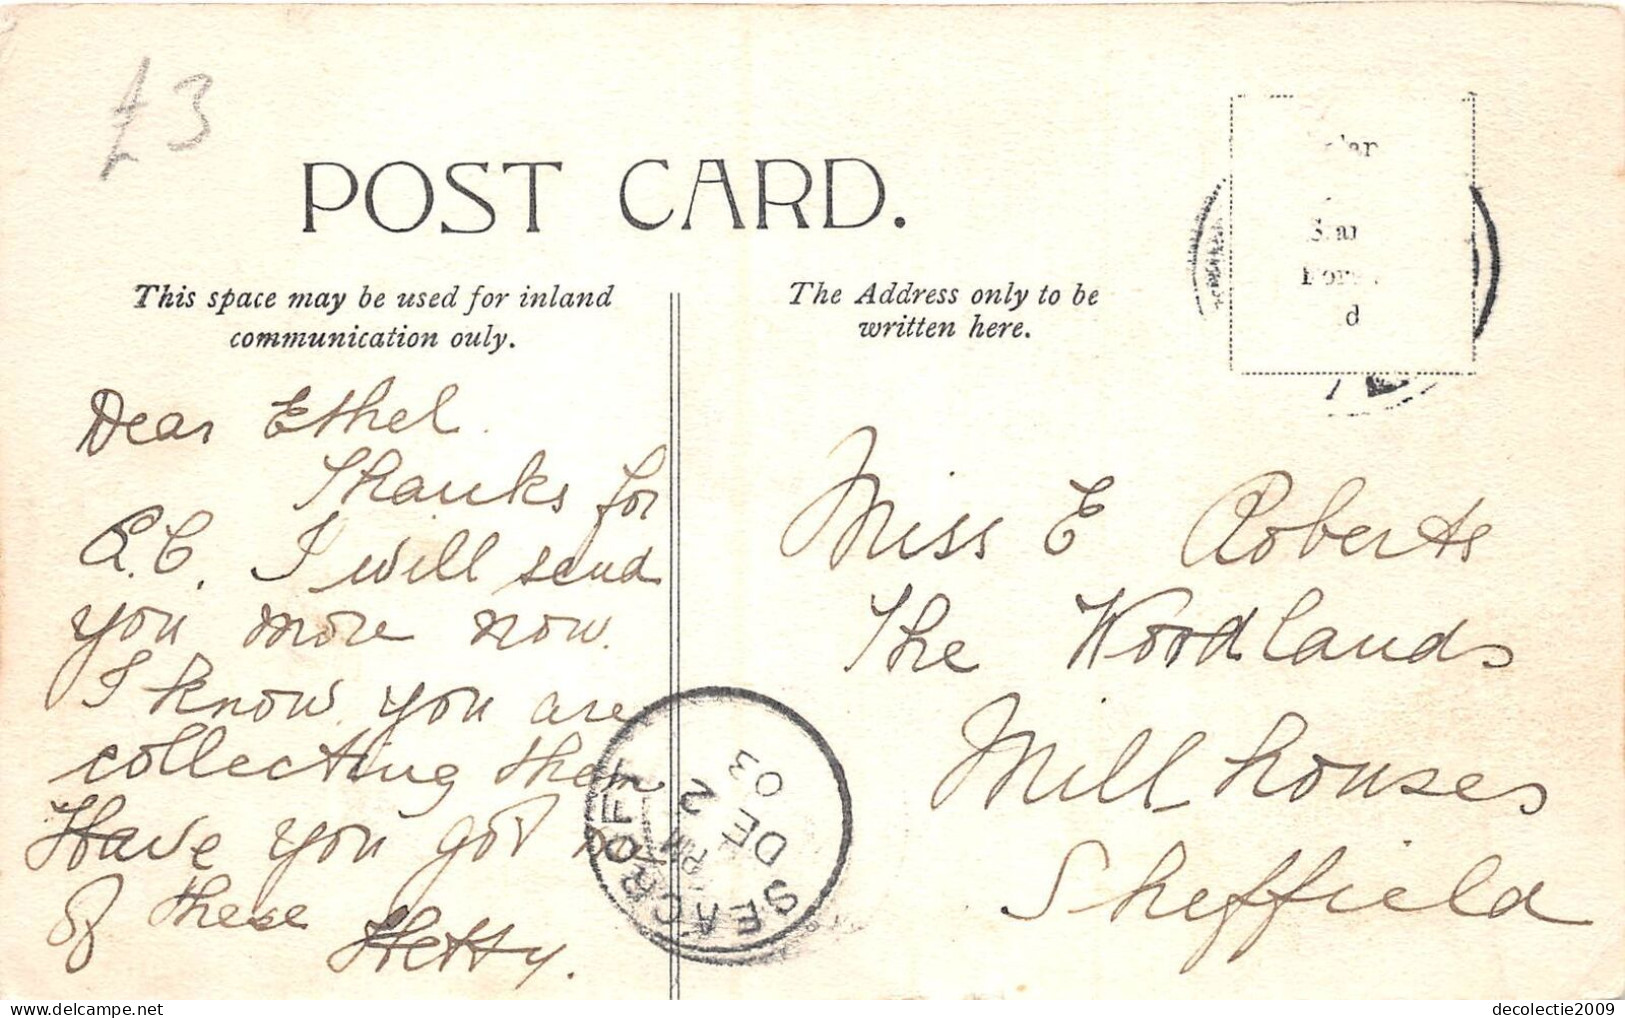 £3
POST CARD.
This space may be used for inland
communication only.
The Address only to be
written here.
Dear Ethel.
Thanks for
P.C. I will send
you more now.
I know you are
collecting them
Have you got
of these
Hetty.
Miss E Roberts
The Woodlands
Mill houses
Sheffield
SEACROFT
2
DE
03
d
decolectie2009